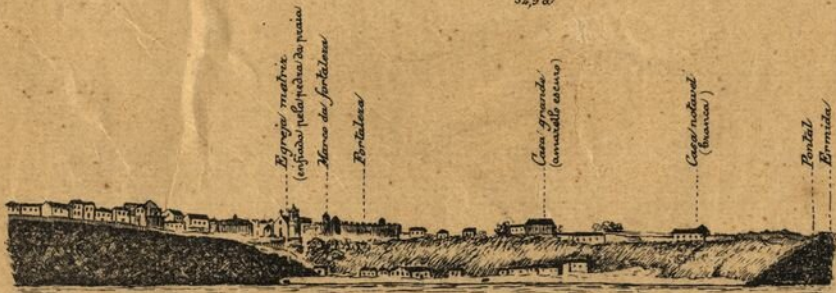 Egreja matriz
(enfiada pela pedra da praia
Marco da fortaleza
Fortaleza
Casa grande
(amarello escuro)
Casa notavel
(branca)
Pontal
Ermida